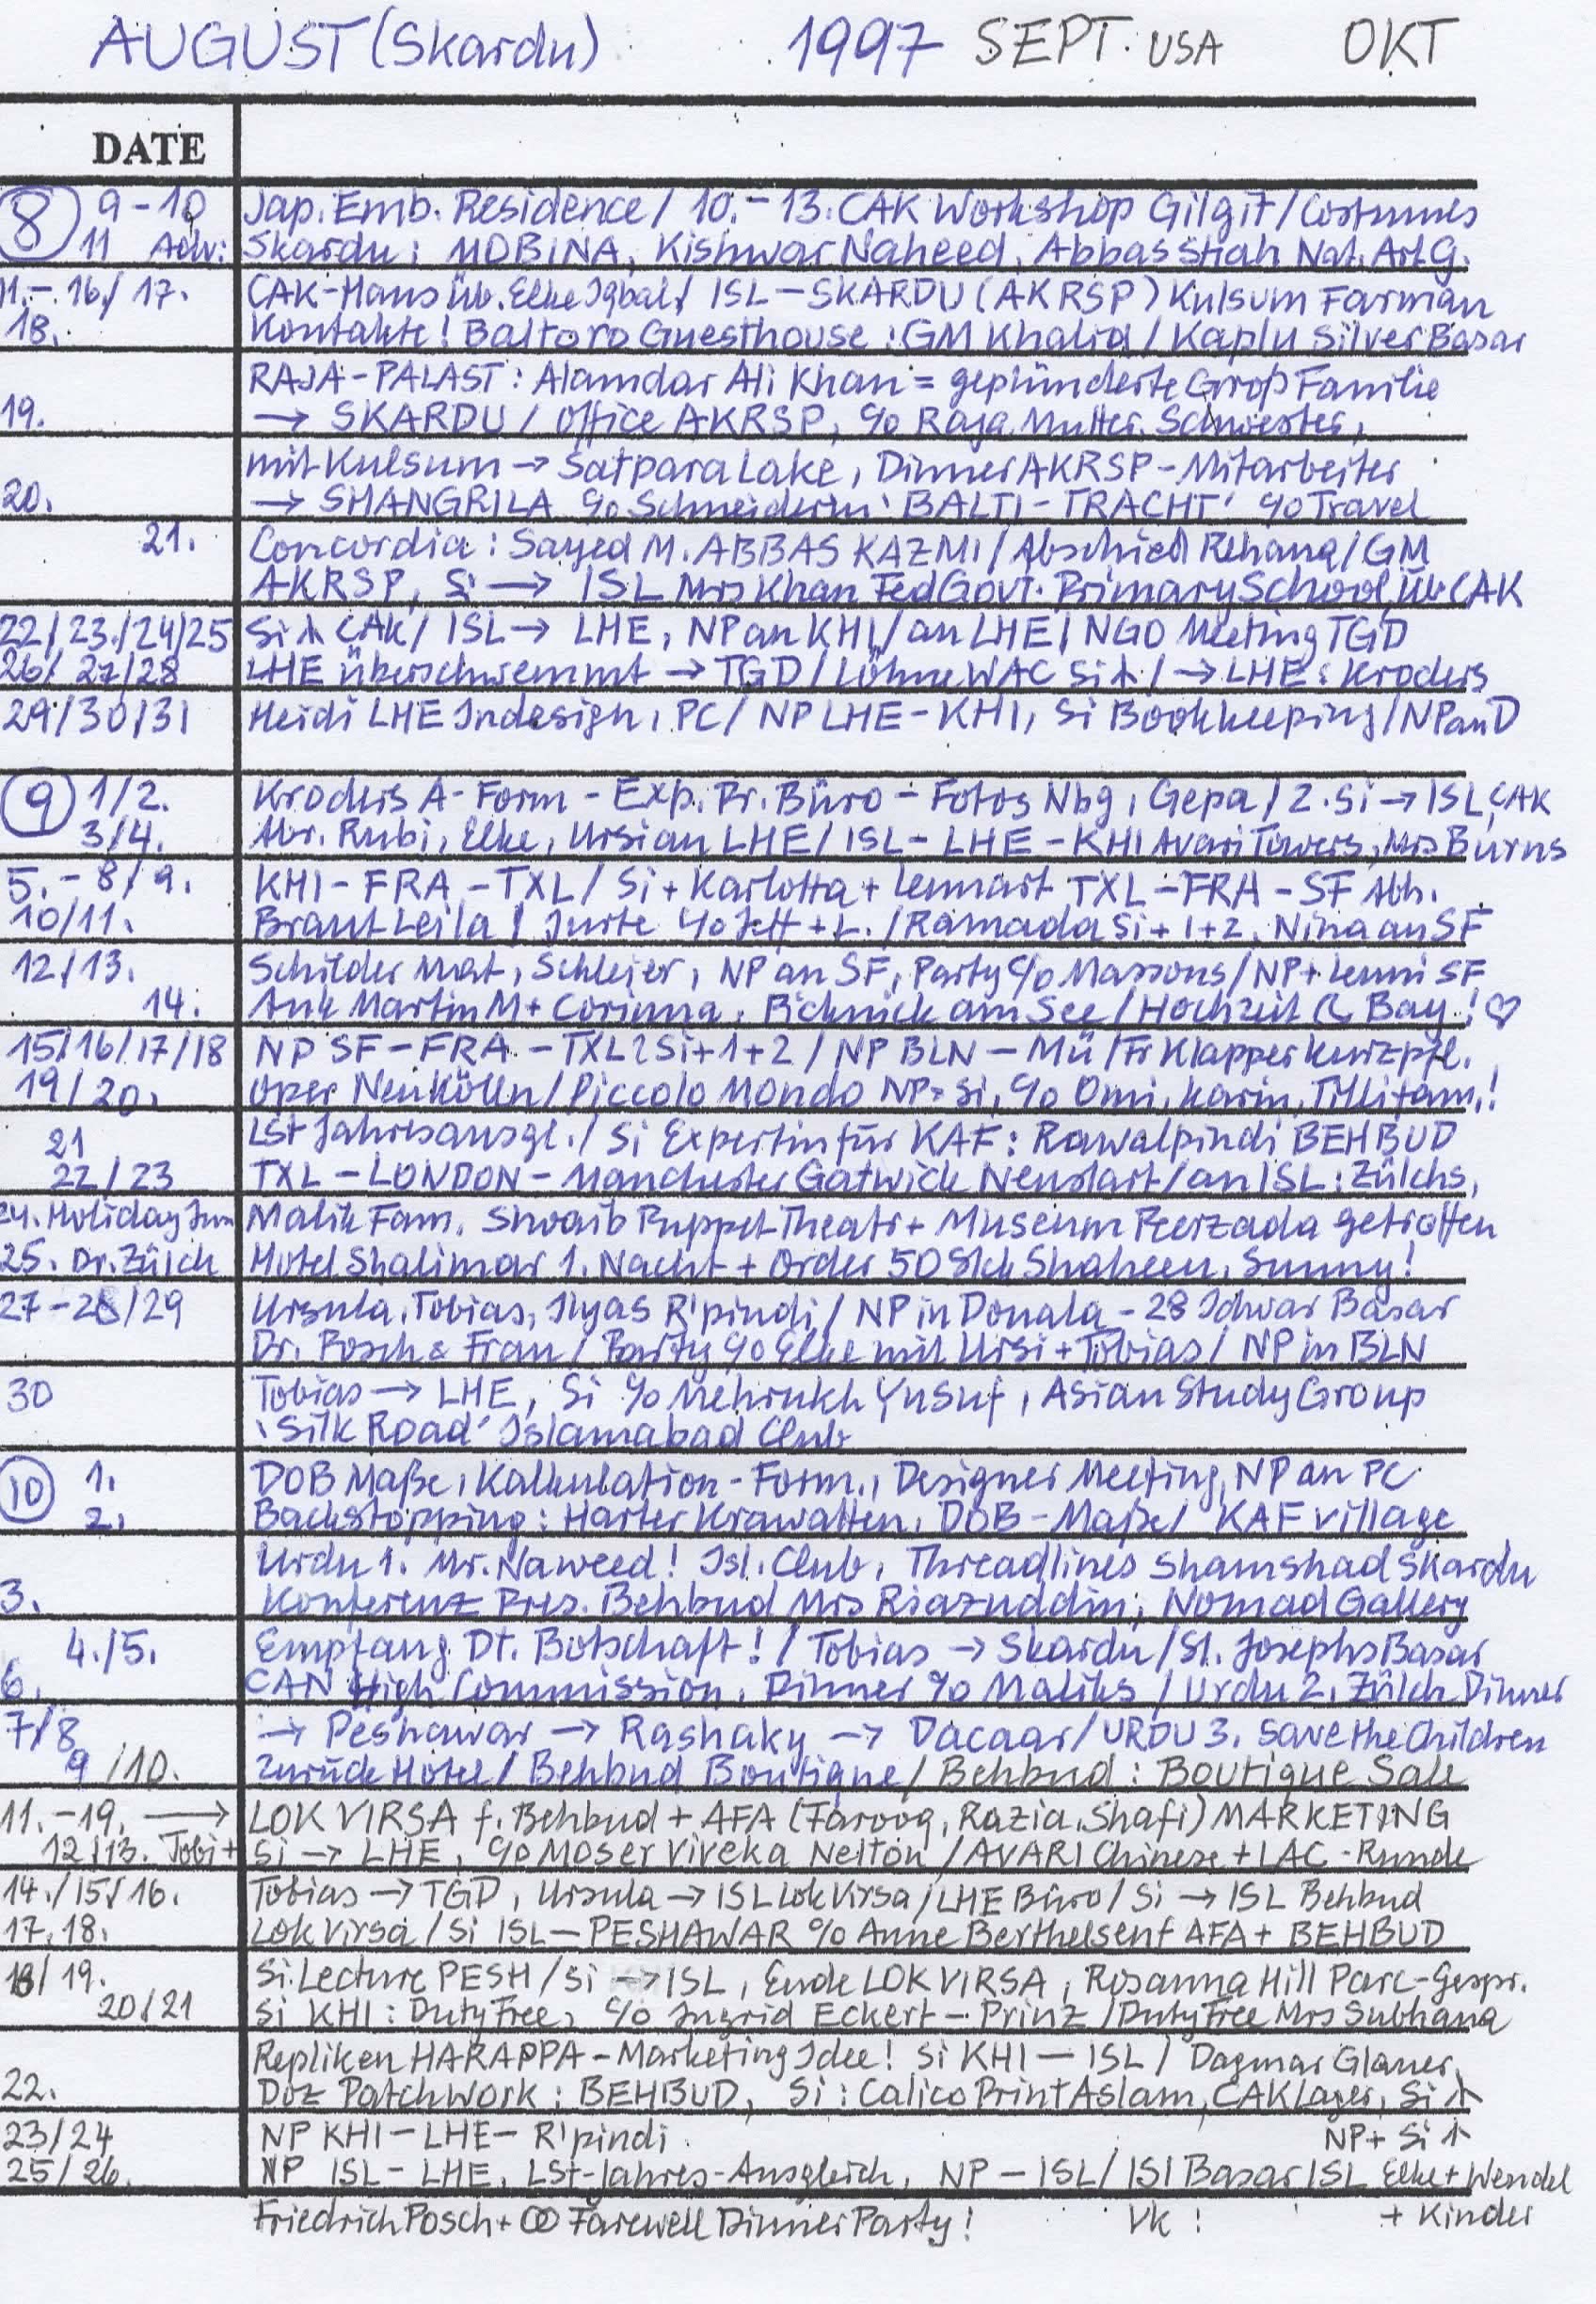 AUGUST (Skardu) 1997 SEPT. USA OKT
DATE
8 9-10 Jap. Emb. Residence / 10.-13. CAK Workshop Gilgit / Costumes
11 Adv: Skardu: MOBINA, Kishwar Naheed, Abbas Shah Nat. Art G.
11.-16./17. CAK-Haus üb. Elke Iqbal / ISL-SKARDU (AKRSP) Kulsum Farman
18. Kontakte! Baltoro Guesthouse: GM Khalid / Kaplu Silver Basar
RAJA-PALAST: Alamdar Ali Khan = geplünderte Groß Familie
19. → SKARDU / Office AKRSP, c/o Raja Mutter, Schwester,
mit Kulsum → Satpara Lake, Dinner AKRSP-Mitarbeiter
20. → SHANGRILA c/o Schneiderin 'BALTI-TRACHT' c/o Travel
21. Concordia: Sayed M. ABBAS KAZMI / Abschied Rehana / GM
AKRSP, Si → ISL Mrs Khan Fed Govt. Primary School, üb. CAK
22/23./24/25 Si CAK / ISL → LHE, NP an KHI / an LHE / NGO Meeting TGD
26/27/28 LHE überschwemmt → TGD / Löhne WAC Si / → LHE: Kroders
29/30/31 Heidi LHE Indesign, PC / NP LHE-KHI, Si Bookkeeping / NP an D
9 1/2. Kroders A-Form - Exp. Pr. Büro - Fotos Nbg, Gepa / 2. Si → ISL, CAK
3/4. Abr. Rubi, Elke, Ursi an LHE / ISL-LHE-KHI Avari Towers, Mrs Burns
5.-8/9. KHI-FRA-TXL / Si + Karlotta + Lennart TXL-FRA-SF Abh.
10/11. Braut Leila / Jurte c/o Jeff + L. / Ramada Si + 1+2, Nina an SF
12/13. Schilder Mat, Schleier, NP an SF, Party c/o Massons / NP + Lenni SF
14. Ank Martin M + Corinna, Picknick am See / Hochzeit Bay! ♡
15/16/17/18 NP SF-FRA-TXL Si+1+2 / NP BLN-Mü / Fr Klapper Kurzpfl.
19/20. Oper Neukölln / Piccolo Mondo NP + Si, c/o Omi, Karin, Tilli + Fam.!
21 LSt Jahresausgl. / Si Expertin für KAF: Rawalpindi BEHBUD
22/23 TXL-LONDON-Manchester Gatwick Neustart / an ISL: Zülchs,
24. Holiday Inn Malik Fam. Shoaib Puppet Theatr + Museum Peerzada getroffen
25. Dr. Zülch Hotel Shalimar 1. Nacht + Order 50 Stck Shaheen, Sunny!
27-28/29 Ursula, Tobias, Ilyas R'pindi / NP in Douala - 28 Ichwar Basar
Dr. Posch & Frau / Party c/o Elke mit Ursi + Tobias / NP in BLN
30 Tobias → LHE, Si c/o Mehrukh Yusuf, Asian Study Group
'Silk Road' Islamabad Club
10 1. DOB Maße, Kalkulation-Form., Designer Meeting, NP an PC
2. Backstopping: Harter Krawatten, DOB-Maße / KAF village
Urdu 1. Mr. Naweed! Isl. Club, Threadlines Shamshad Skardu
3. Konferenz Pres. Behbud Mrs Riazuddin, Nomad Gallery
4./5. Empfang Dt. Botschaft! / Tobias → Skardu / St. Josephs Basar
6. CAN High Commission, Dinner c/o Maliks / Urdu 2. Zülch Dinner
7/8 → Peshawar → Rashaky → Dacaar / URDU 3. Save the Children
9/10. zurück Hotel / Behbud Boutique / Behbud: Boutique Sale
11.-19. → LOK VIRSA f. Behbud + AFA (Farooq, Razia, Shafi) MARKETING
12/13. Tobi + Si → LHE, c/o Moser Viveka Nelton / AVARI Chinese + LAC-Runde
14./15/16. Tobias → TGD, Ursula → ISL Lok Virsa / LHE Büro / Si → ISL Behbud
17.18. Lok Virsa / Si ISL-PESHAWAR c/o Anne Berthelsen f AFA + BEHBUD
18/19. Si. Lecture PESH / Si → ISL, Ende LOK VIRSA, Rosanna Hill Parc-Gespr.
20/21 Si KHI: Duty Free, c/o Ingrid Eckert-Prinz / Duty Free Mrs Subhana
Repliken HARAPPA-Marketing Idee! Si KHI-ISL / Dagmar Glaner,
22. Doz Patchwork: BEHBUD, Si: Calico Print Aslam, CAK Lager, Si
23/24 NP KHI-LHE-R'pindi NP + Si
25/26. NP ISL-LHE, LSt-Jahres-Ausgleich, NP-ISL / ISI Basar ISL Elke + Wendel
Friedrich Posch + Farewell Dinner Party! Vk! + Kinder